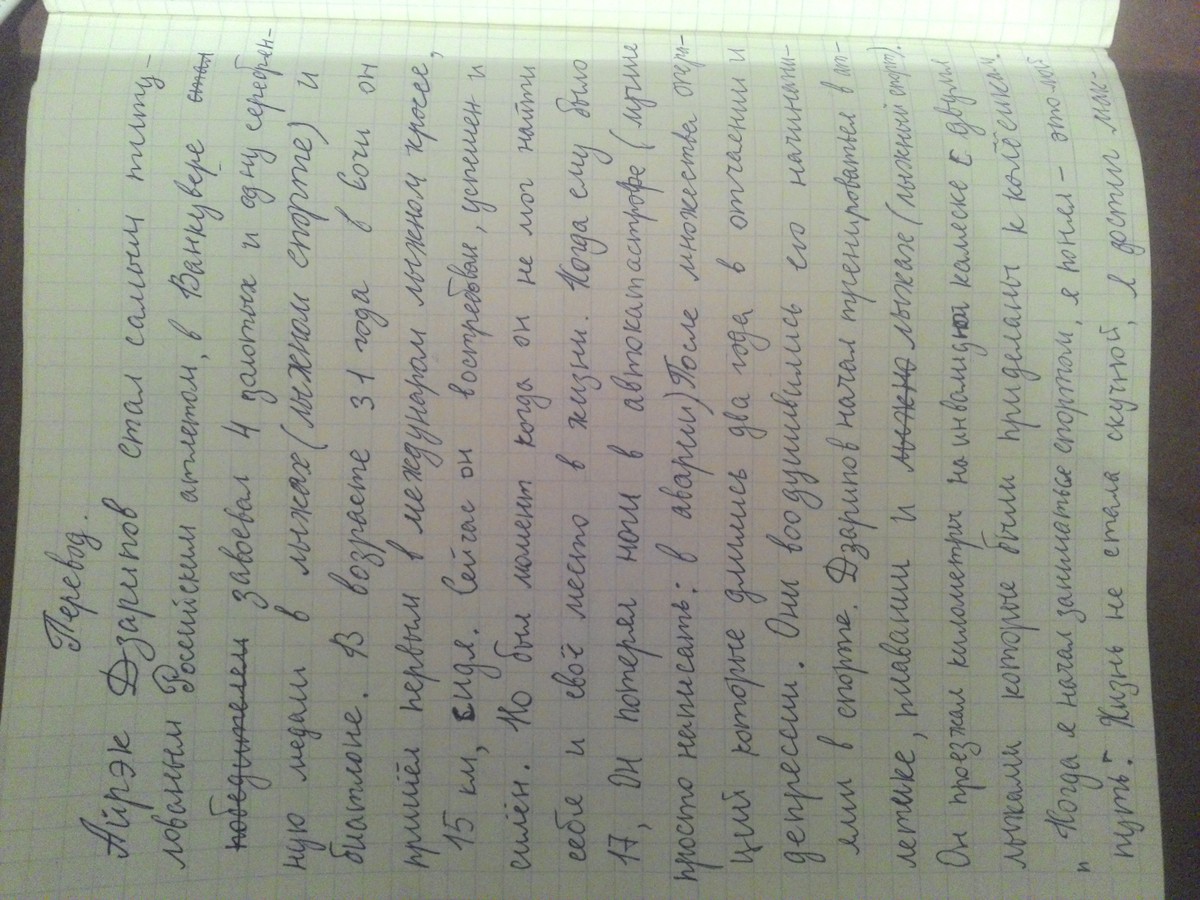 Перевод.
Айрэк Дзарипов стал самым титу-
лованым Российским атлетом, в Ванкувере стал
победителем завоевал 4 золотых и одну серебрен-
ную медали в лыжах (лыжном спорте) и
биатлоне. В возрасте 31 года в Сочи он
пришёл первым в международном лыжном кроссе,
15 км, сидя. Сейчас он востребован, успешен и
силён. Но был момент когда он не мог найти
себя и своё место в жизни. Когда ему было
17, он потерял ноги в автокатастрофе (лучше
просто написать: в аварии) После множества опера-
ций которые длились два года в отчаении и
депрессии. Они воодушивились его начинани-
ями в спорте. Дзарипов начал тренироватьея в ат-
летике, плавании и лыжно лыжах (лыжный спорт).
Он проезжал километры на инвалидной каляске с двумя
лыжами которые были приделаны к колёсикам.
" Когда я начал заниматься спортом, я понял - это мой
путь." Жизнь не стала скучной, я достиг мак-